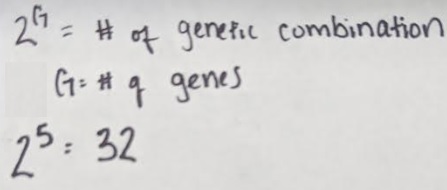 2^G = # of genetic combination
G = # of genes
2^5 = 32